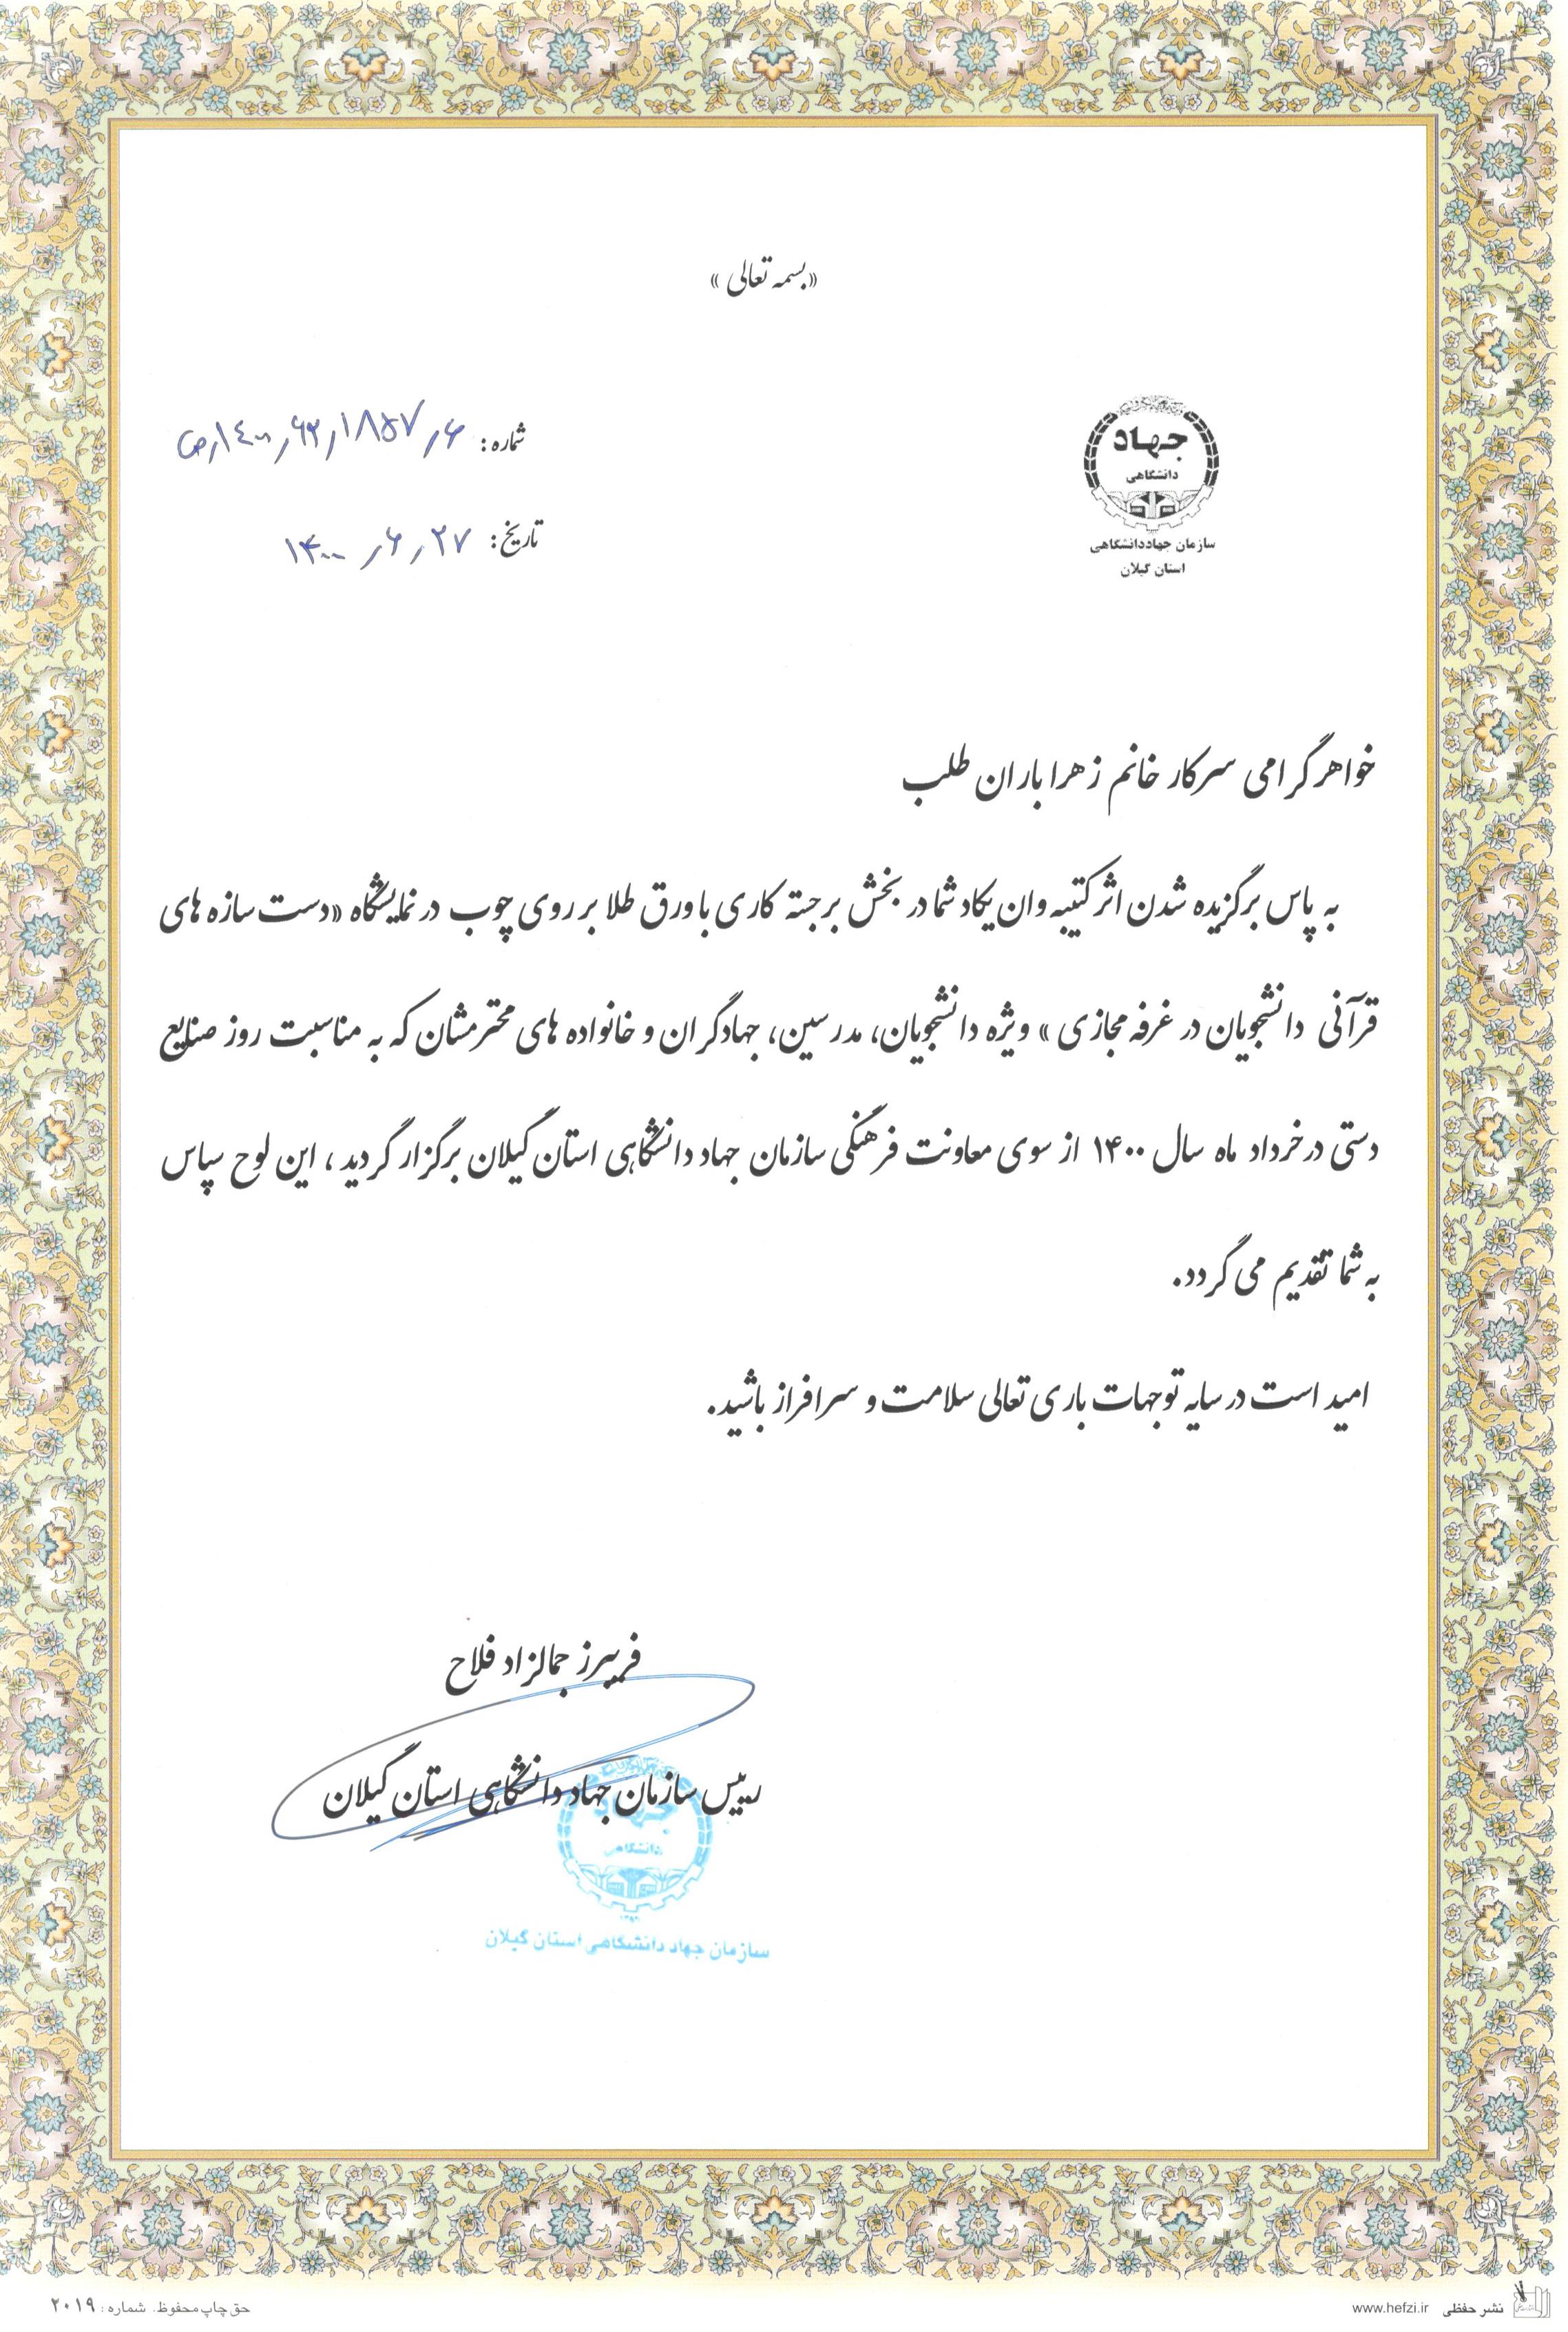 «بسمه تعالی»
جهاد
دانشگاهی
سازمان جهاددانشگاهی
استان گیلان
شماره:
تاریخ: ۱۴۰۰٫۶٫۲۷
خواهر گرامی سرکار خانم زهرا باران طلب
به پاس برگزیده شدن اثر کتیبه وان یکاد شما در بخش برجسته کاری با ورق طلا بر روی چوب در نمایشگاه «دست سازه های
قرآنی دانشجویان در غرفه مجازی» ویژه دانشجویان، مدرسین، جهادگران و خانواده های محترمشان که به مناسبت روز صنایع
دستی در خرداد ماه سال ۱۴۰۰ از سوی معاونت فرهنگی سازمان جهاد دانشگاهی استان گیلان برگزار گردید، این لوح سپاس
به شما تقدیم می گردد.
امید است در سایه توجهات باری تعالی سلامت و سرافراز باشید.
فریبرز جمالزاد فلاح
رییس سازمان جهاد دانشگاهی استان گیلان
جهاد
دانشگاهی
سازمان جهاد دانشگاهی استان گیلان
نشر حفظی www.hefzi.ir
حق چاپ محفوظ. شماره: ۲۰۱۹